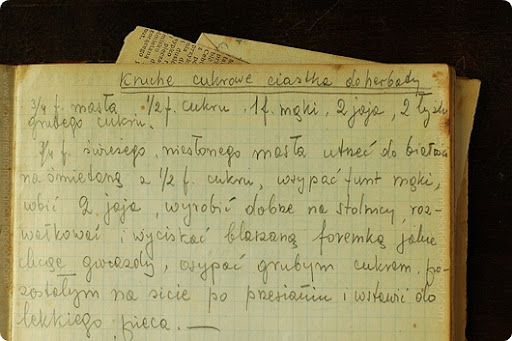 Kruche cukrowe ciastka do herbaty
3/4 f. masła 1/2 f. cukru, 1 f. mąki, 2 jaja, 2 łyżk
grubego cukru.
3/4 f. świeżego, niesłonego masła utrzeć do białości
na śmietanę z 1/2 f. cukru, wsypać funt mąki,
wbić 2 jaja, wyrobić dobrze na stolnicy, roz-
wałkować i wyciskać blaszaną foremką jakie
chcąc gwiazdy, osypać grubym cukrem po-
zostałym na sicie po przesianiu i wstawić do
lekkiego pieca. —